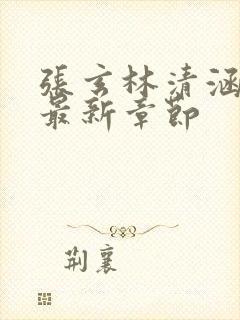 張玄林清涵
最新章節
荆襄